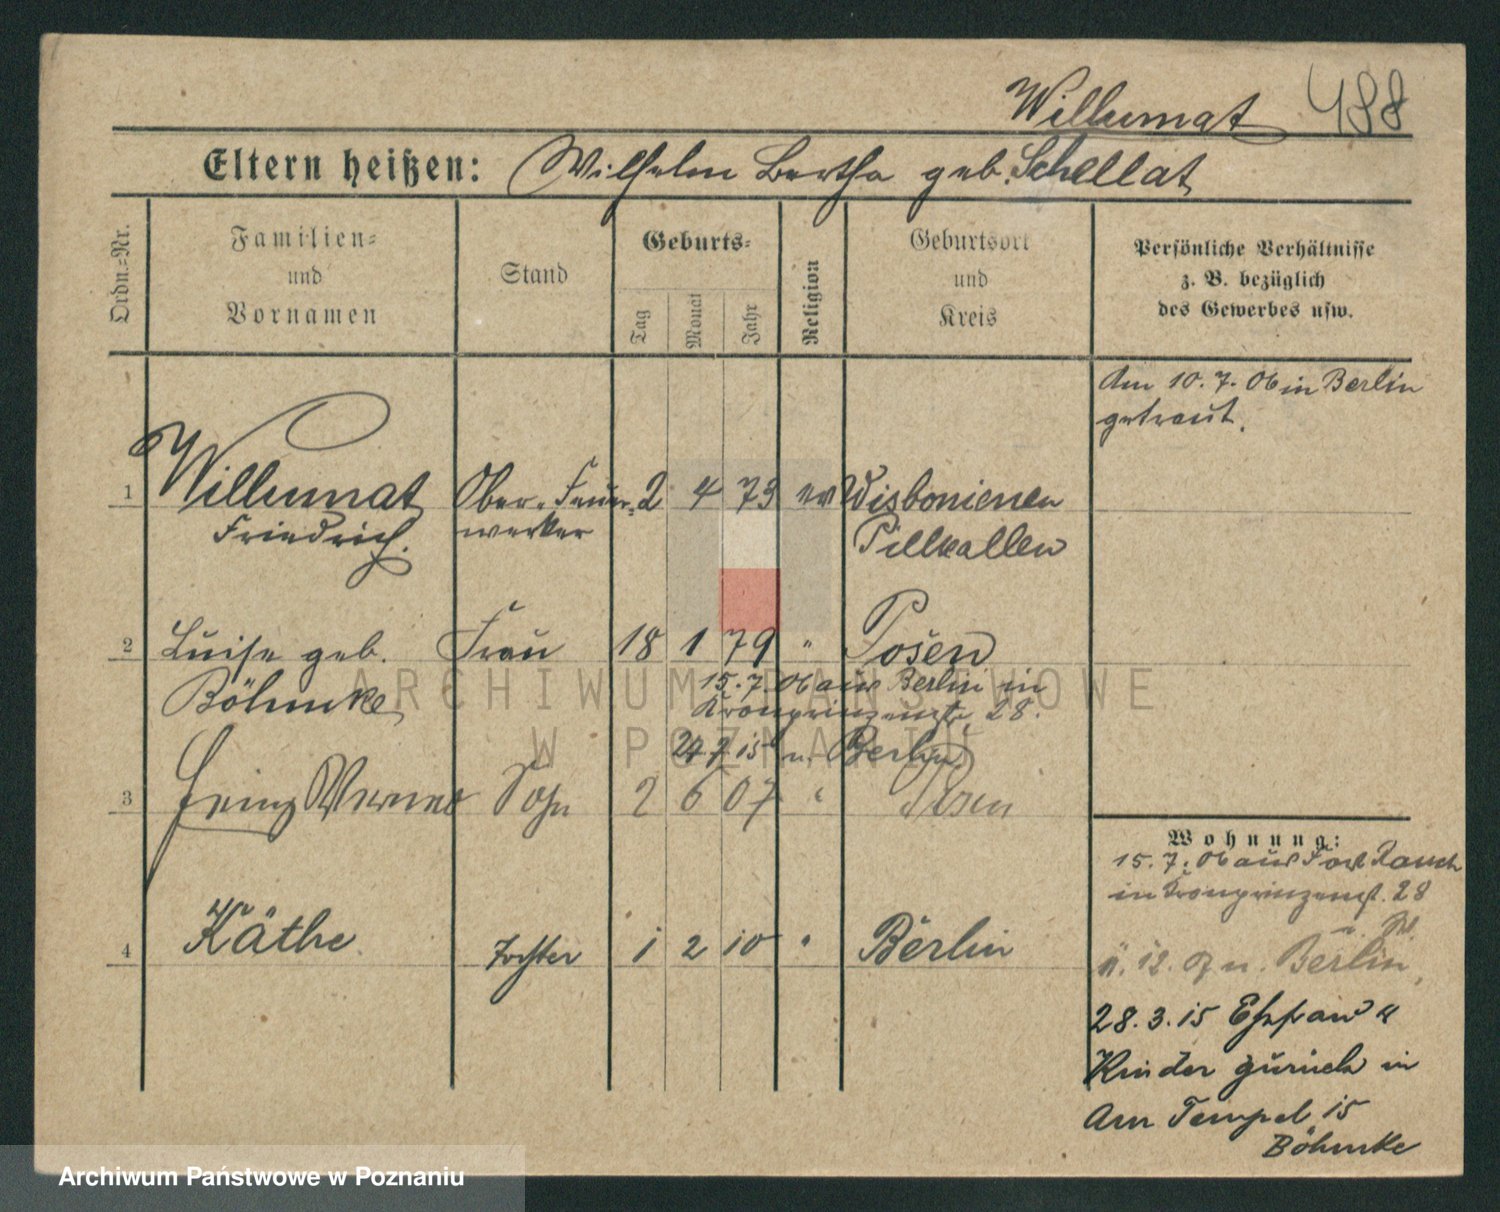 Willumat 488
Eltern heißen: Wilhelm Bertha geb. Schellat
Ordn.-Nr.
Familien-
und
Vornamen
Stand
Geburts-
Tag
Monat
Jahr
Religion
Geburtsort
und
Kreis
Persönliche Verhältnisse
z. B. bezüglich
des Gewerbes usw.
Am 10.7.06 in Berlin
getraut.
1 Willumat Ober-Feuer- 2 4 73 ev Wisbonienen
Friedrich. werker Pillkallen
2 Luise geb. Frau 18 1 79 " Posen
Böhmke 15.7.06 aus Berlin in
Kronprinzenstr. 28.
24 7 15 n. Berlin
3 Heinz Werner Sohn 2 6 07 " Posen
Wohnung:
15.7.06 aus Fort Rauch
in Kronprinzenst. 28
4 Käthe Tochter 1 2 10 " Berlin
n. Berlin
28.3.15 Ehefrau u
Kinder zurück in
Am Tempel 15
Böhmke
ARCHIWUM PAŃSTWOWE
W POZNANIU
Archiwum Państwowe w Poznaniu